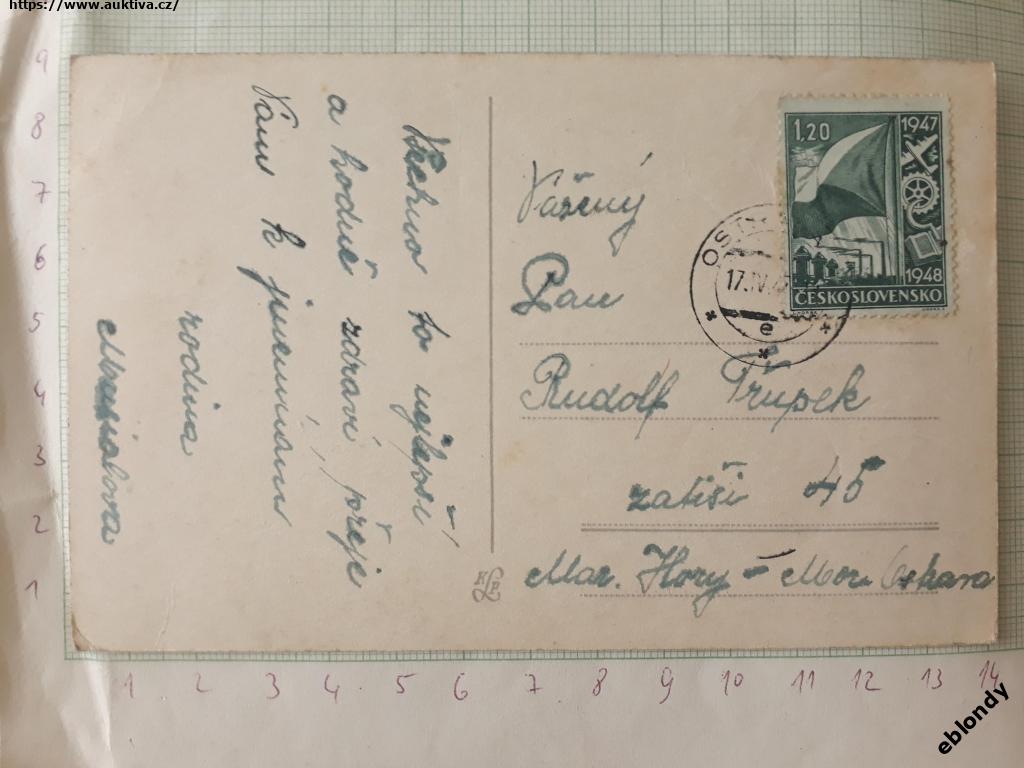 https://www.auktiva.cz/
Všechno to nejlepší
a hodně zdraví přeje
Vám k jmeninám
rodina
1,20
1947
1948
ČESKOSLOVENSKO
17.IV.
e
Vážený
Pan
Rudolf Trupek
zátiší 45
Mar. Hory – Mor. Ostrava
9
8
7
6
5
4
3
2
1
1 2 3 4 5 6 7 8 9 10 11 12 13 14
eblondy